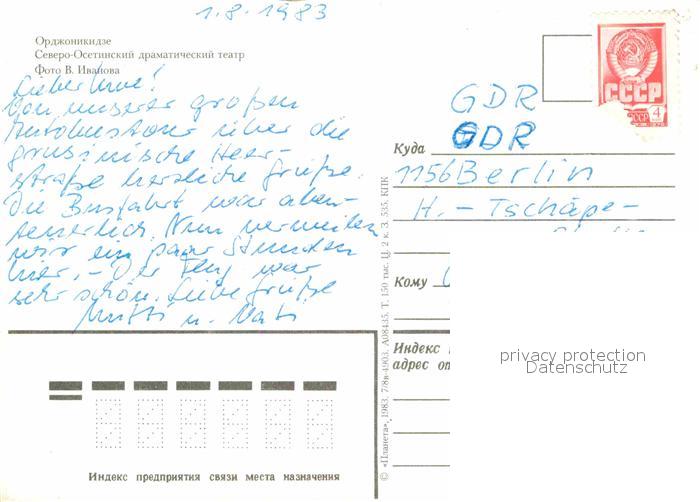 1.8.1983
Орджоникидзе
Северо-Осетинский драматический театр
Фото В. Иванова
Lieber Uwe!
Von unserer großen
Autobustour über die
grusinische Heer-
straße herzliche Grüße.
Die Busfahrt war aben-
teuerlich. Nun verweilen
wir ein paar Stunden
hier. - Der Flug war
sehr schön. Liebe Grüße
Mutti u. Vati
СССР
4
GDR
GDR
Куда
1156 Berlin
H. - Tschäpe -
Кому
Индекс
адрес от
privacy protection
Datenschutz
© «Планета», 1983. 7/8в-4903. А08435. Т. 150 тыс. Ц. 2 к. З. 535. КПК
Индекс предприятия связи места назначения